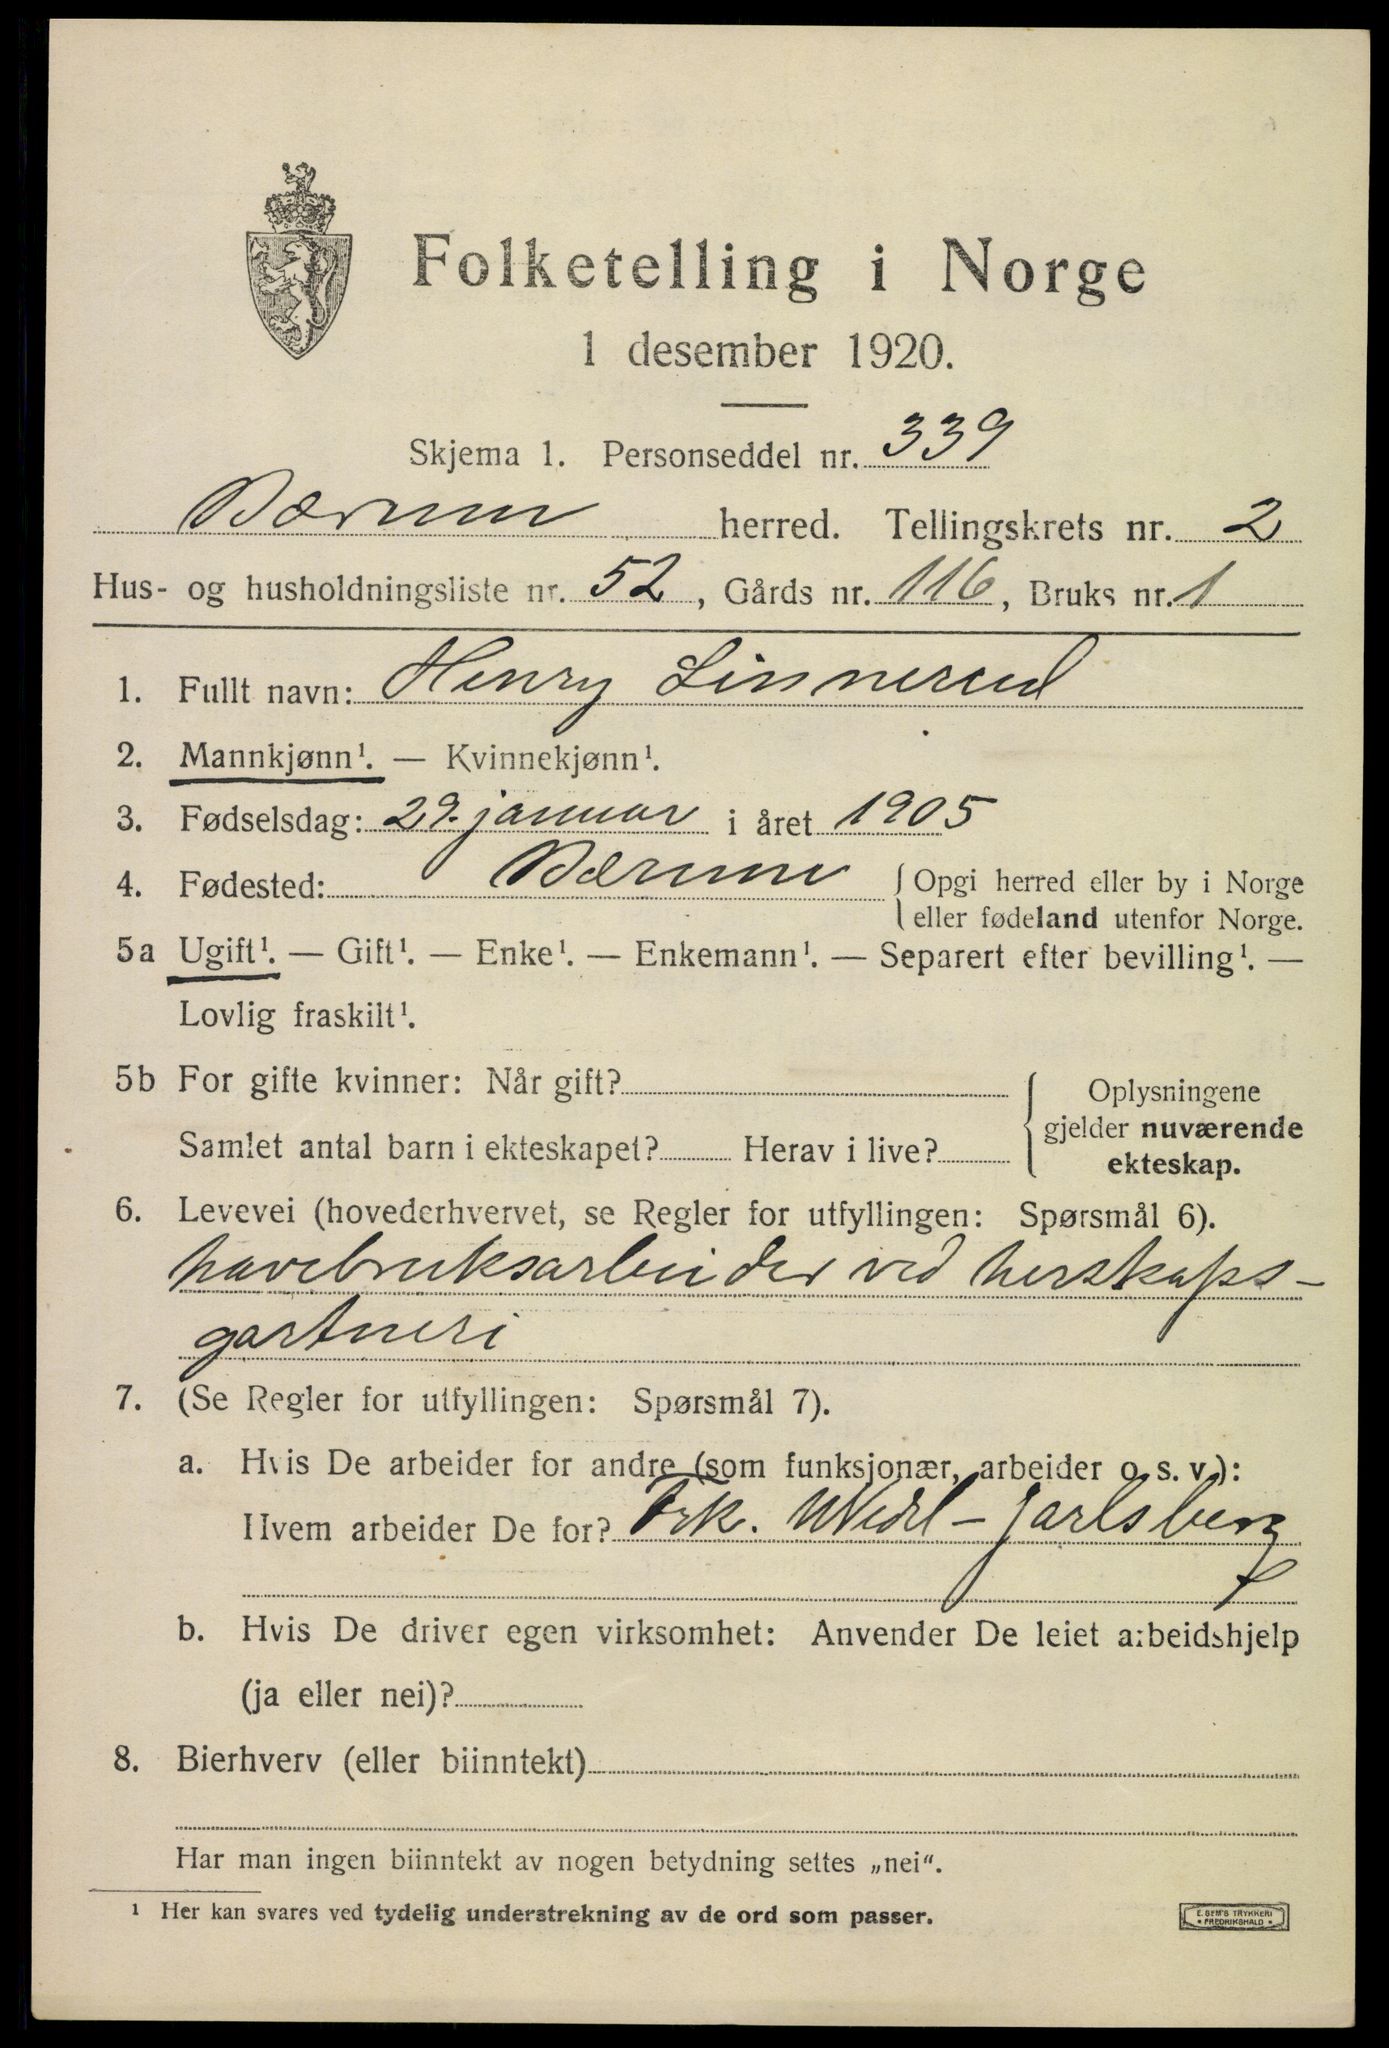 Folketelling i Norge
1 desember 1920.
Skjema 1. Personseddel nr. 339
Bærum herred. Tellingskrets nr. 2
Hus- og husholdningsliste nr. 52, Gårds nr. 116, Bruks nr. 1
1. Fullt navn: Henry Linnerud
2. Mannkjønn¹. — Kvinnekjønn¹.
3. Fødselsdag: 29. januar i året 1905
4. Fødested: Bærum { Opgi herred eller by i Norge
eller fødeland utenfor Norge.
5a Ugift¹. — Gift¹. — Enke¹. — Enkemann¹. — Separert efter bevilling¹. —
Lovlig fraskilt¹.
5b For gifte kvinner: Når gift?
Samlet antal barn i ekteskapet? Herav i live?
Oplysningene
gjelder nuværende
ekteskap.
6. Levevei (hovederhvervet, se Regler for utfyllingen: Spørsmål 6).
havebruksarbeider ved herskaps-
gartneri
7. (Se Regler for utfyllingen: Spørsmål 7).
a. Hvis De arbeider for andre (som funksjonær, arbeider o. s. v.):
Hvem arbeider De for? Frk. Wedel-Jarlsberg
b. Hvis De driver egen virksomhet: Anvender De leiet arbeidshjelp
(ja eller nei)?
8. Bierhverv (eller biinntekt)
Har man ingen biinntekt av nogen betydning settes „nei“.
¹ Her kan svares ved tydelig understrekning av de ord som passer.
E. SEM'S TRYKKERI
* FREDRIKSHALD *